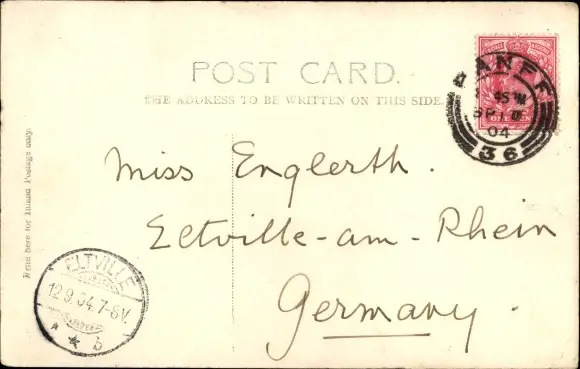 POST CARD.
THE ADDRESS TO BE WRITTEN ON THIS SIDE.
Write here for Inland Postage only.
BANFF
45 PM
SP 10
04
36
ONE PENNY
Miss Englerth.
Eltville-am-Rhein
Germany.
ELTVILLE
12.9.04.7-8V.
* * b